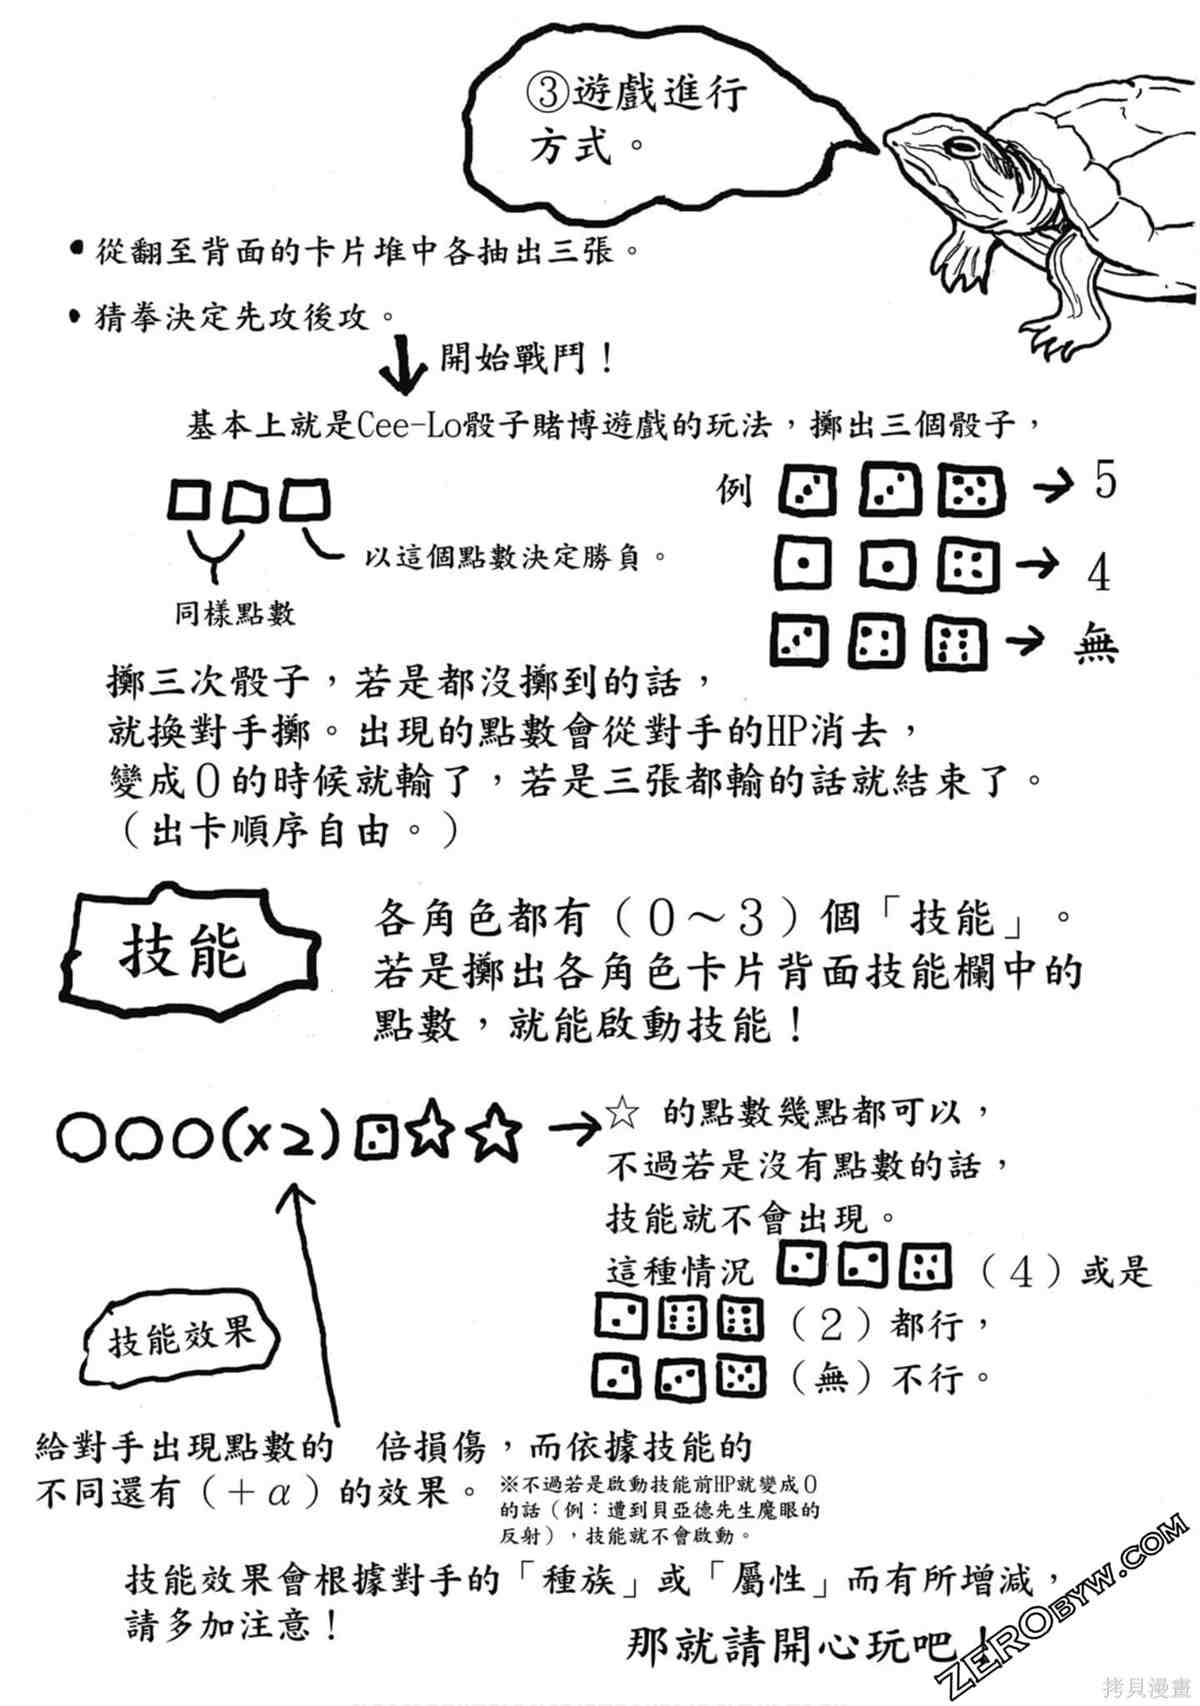 ③遊戲進行
方式。
•從翻至背面的卡片堆中各抽出三張。
•猜拳決定先攻後攻。
開始戰鬥！
基本上就是Cee-Lo骰子賭博遊戲的玩法，擲出三個骰子，
例 → 5
→ 4
→ 無
以這個點數決定勝負。
同樣點數
擲三次骰子，若是都沒擲到的話，
就換對手擲。出現的點數會從對手的HP消去，
變成０的時候就輸了，若是三張都輸的話就結束了。
（出卡順序自由。）
技能
各角色都有（０～３）個「技能」。
若是擲出各角色卡片背面技能欄中的
點數，就能啟動技能！
○○○(×2)⚁☆☆ → ☆ 的點數幾點都可以，
不過若是沒有點數的話，
技能就不會出現。
這種情況 （４）或是
（２）都行，
（無）不行。
技能效果
給對手出現點數的　倍損傷，而依據技能的
不同還有（＋α）的效果。
※不過若是啟動技能前HP就變成０
的話（例：遭到貝亞德先生魔眼的
反射），技能就不會啟動。
技能效果會根據對手的「種族」或「屬性」而有所增減，
請多加注意！
那就請開心玩吧！
ZEROBYW.COM
拷貝漫畫